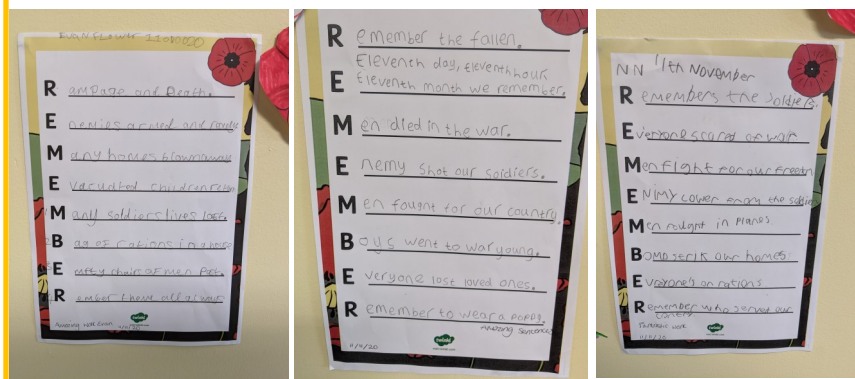 Rampage and Death.
Enemies armed and
Many homes blown away
Evacuated children
Many soldiers lives lost.
Bag of rations in a house
Empty chair of men
Remember those all at war
Amazing work Evan
11/11/20
twinkl
Remember the fallen.
Eleventh day, Eleventh hour
Eleventh month we remember.
Men died in the war.
Enemy shot our soldiers.
Men fought for our country.
Boys went to war young.
Everyone lost loved ones.
Remember to wear a poppy.
Amazing sentences
11/11/20
twinkl
NN 11th November
Remembers the soldiers.
Everyone scared of war
Men fight for our freedom
Enimy cower the soldiers
Men in planes
Bomb strik our homes.
Everone's on rations
Remember who served our
Fantastic work
11/11/20
twinkl